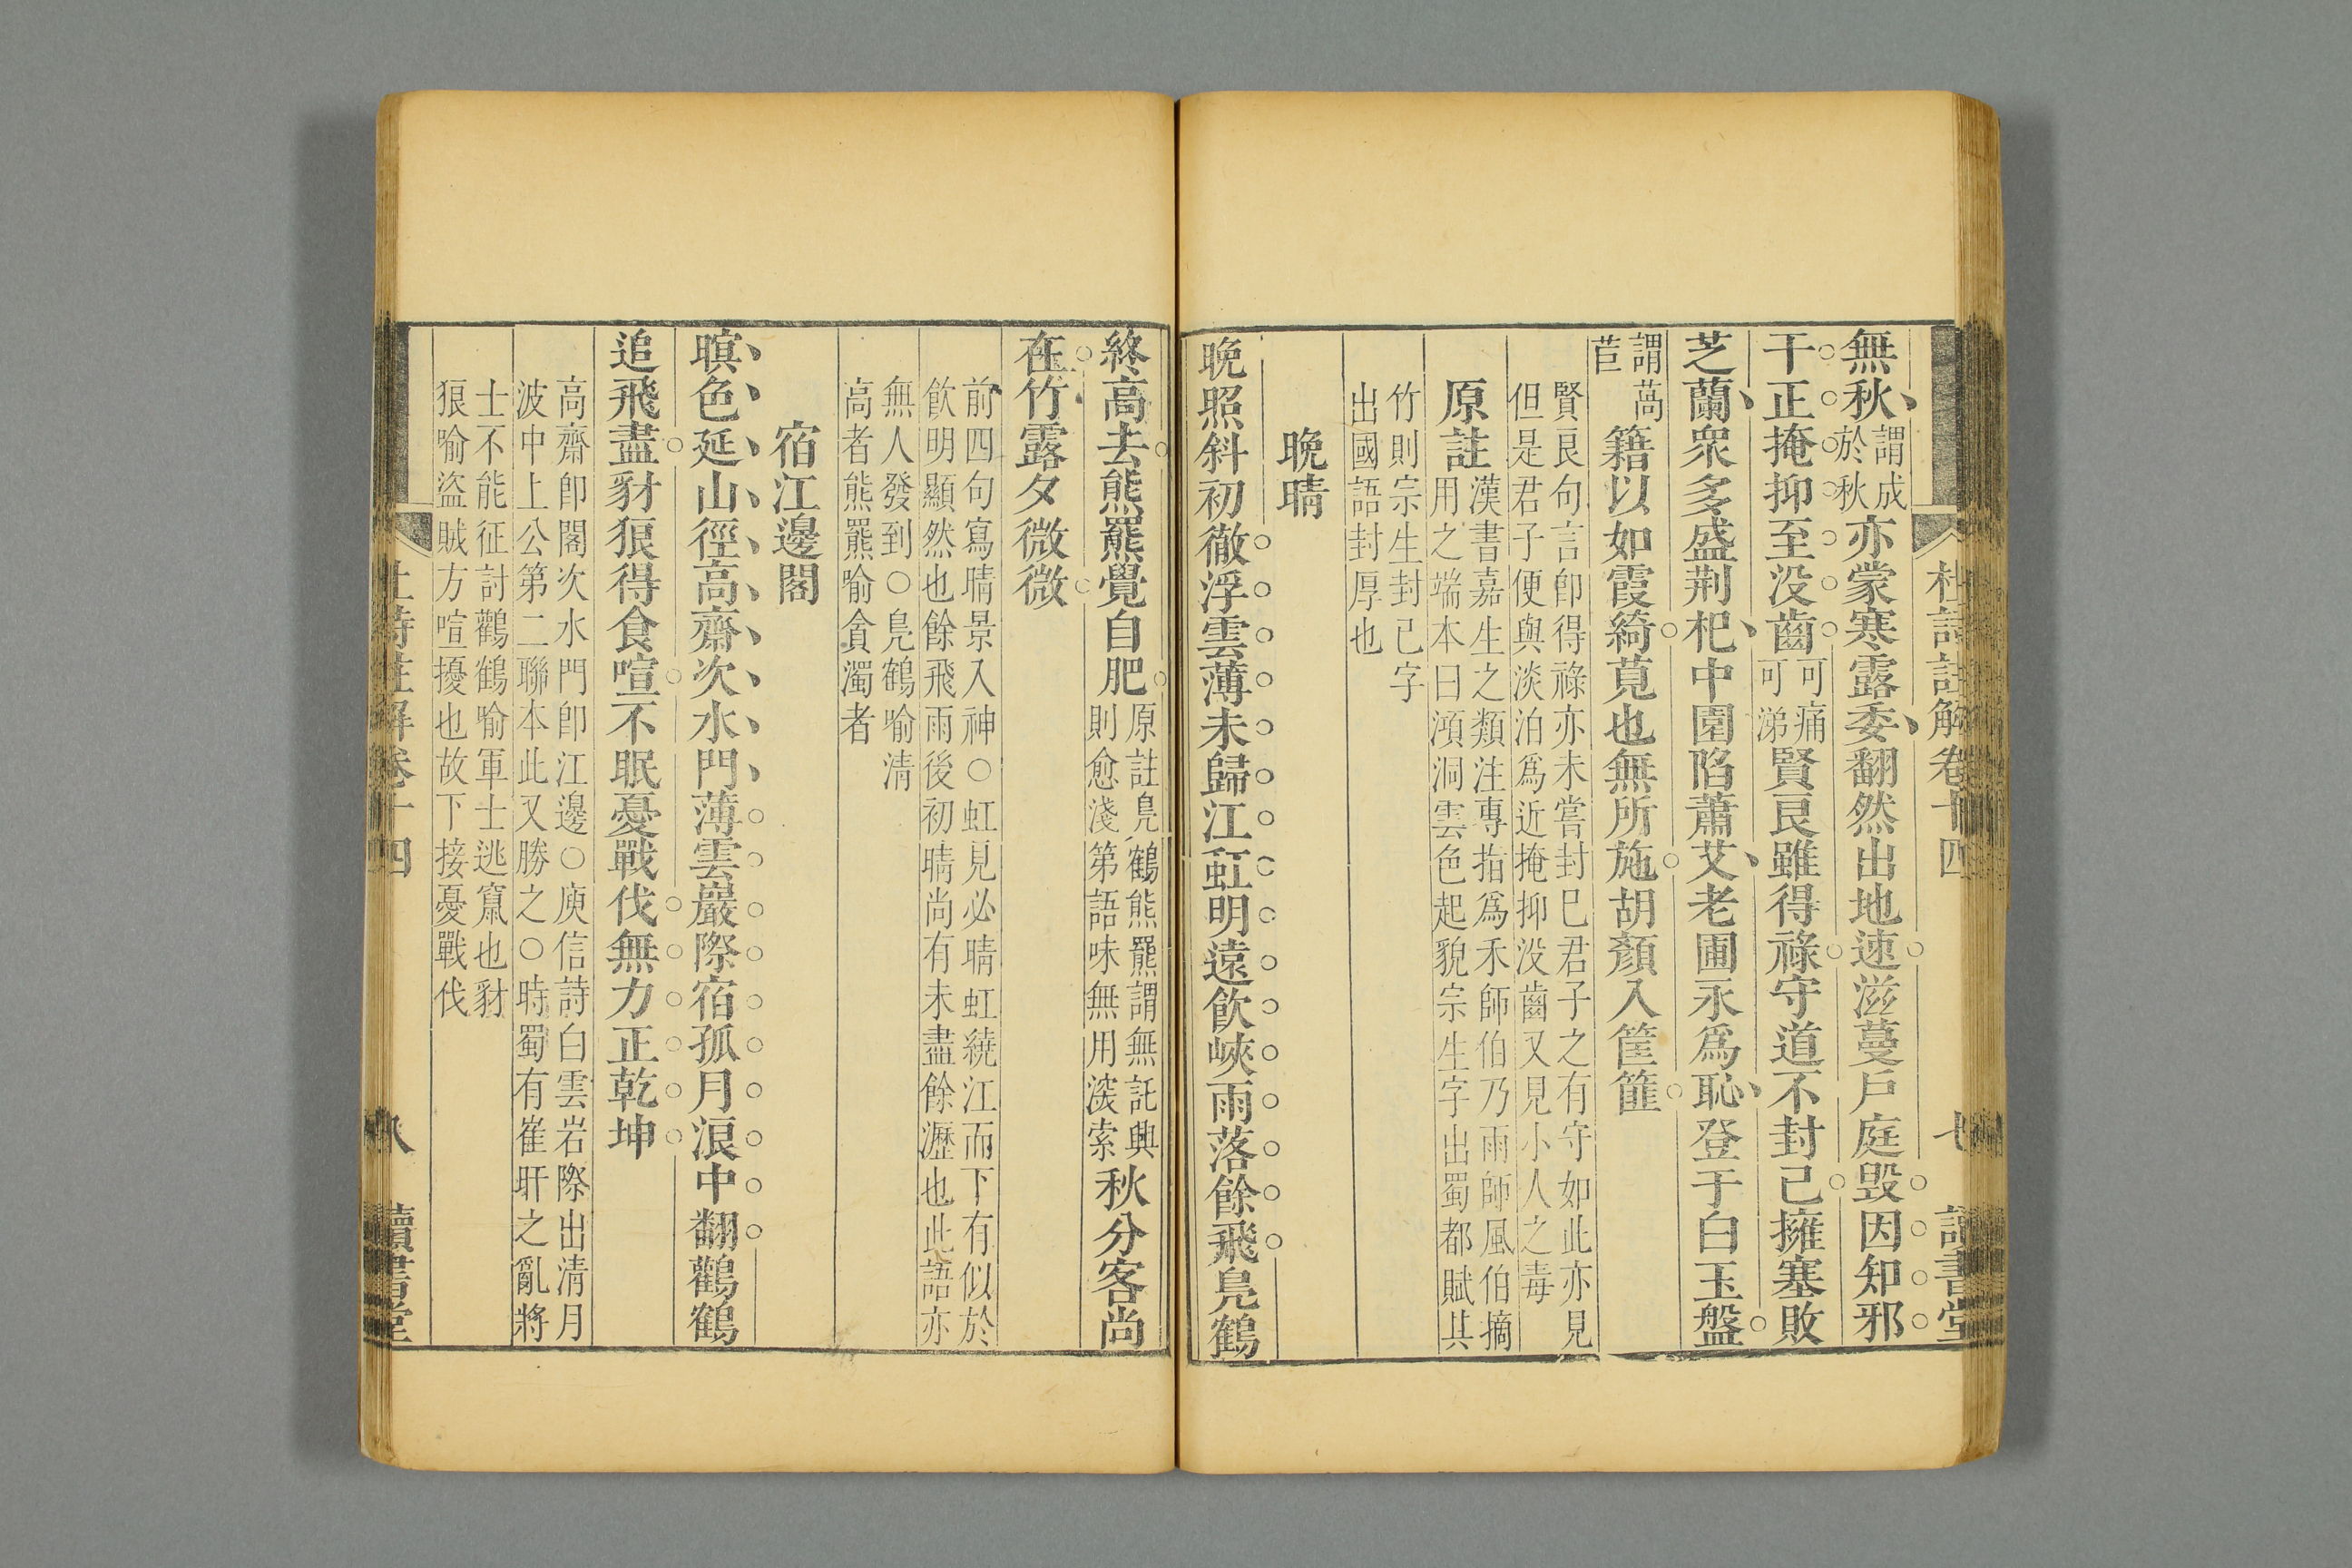 杜詩註解卷十四　七　讀書堂
無秋謂成於秋亦蒙寒露委翻然出地速滋蔓戶庭毀因知邪
干正掩抑至没齒可痛可涕賢良雖得祿守道不封己擁塞敗
芝蘭衆多盛荆杞中園陷蕭艾老圃永爲恥登于白玉盤
謂萵苣籍以如霞綺莧也無所施胡顏入筐篚
賢良句言卽得祿亦未嘗封巳君子之有守如此亦見
但是君子便與淡泊爲近掩抑没齒又見小人之毒
原註漢書嘉生之類注專指爲禾師伯乃雨師風伯摘
用之端本曰澒洞雲色起貌宗生字出蜀都賦其
竹則宗生封己字
出國語封厚也
晚晴
晚照斜初徹浮雲薄未歸江虹明遠飲峽雨落餘飛鳧鶴
終高去熊羆覺自肥原註鳧鶴熊羆謂無託興則愈淺第語味無用深索秋分客尚
在竹露夕微微
前四句寫晴景入神○虹見必晴虹繞江而下有似於
飲明顯然也餘飛雨後初晴尚有未盡餘瀝也此語亦
無人發到○鳧鶴喻清
高者熊羆喻貪濁者
宿江邊閣
暝色延山徑高齋次水門薄雲巖際宿孤月浪中翻鸛鶴
追飛盡豺狼得食喧不眠憂戰伐無力正乾坤
高齋卽閣次水門卽江邊○庾信詩白雲岩際出清月
波中上公第二聯本此又勝之○時蜀有崔旰之亂將
士不能征討鸛鶴喻軍士逃竄也豺
狼喻盜賊方喧擾也故下接憂戰伐
杜詩註解卷十四　八　讀書堂